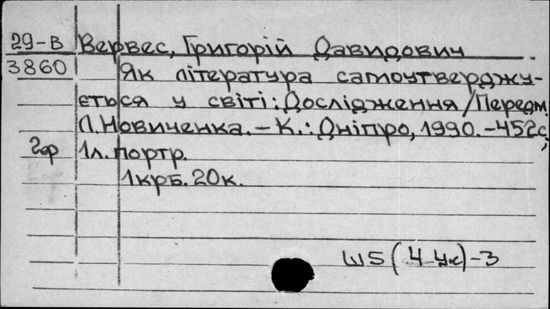 29-В Вервес, Григорій Давидович
3860 Як література самоутверджу-
ється у світі: Дослідження/Передм.
Л.Новиченка.–К.: Дніпро, 1990.–452с,
1л. портр.
1крб. 20к.
Ш5(4Ук)-3